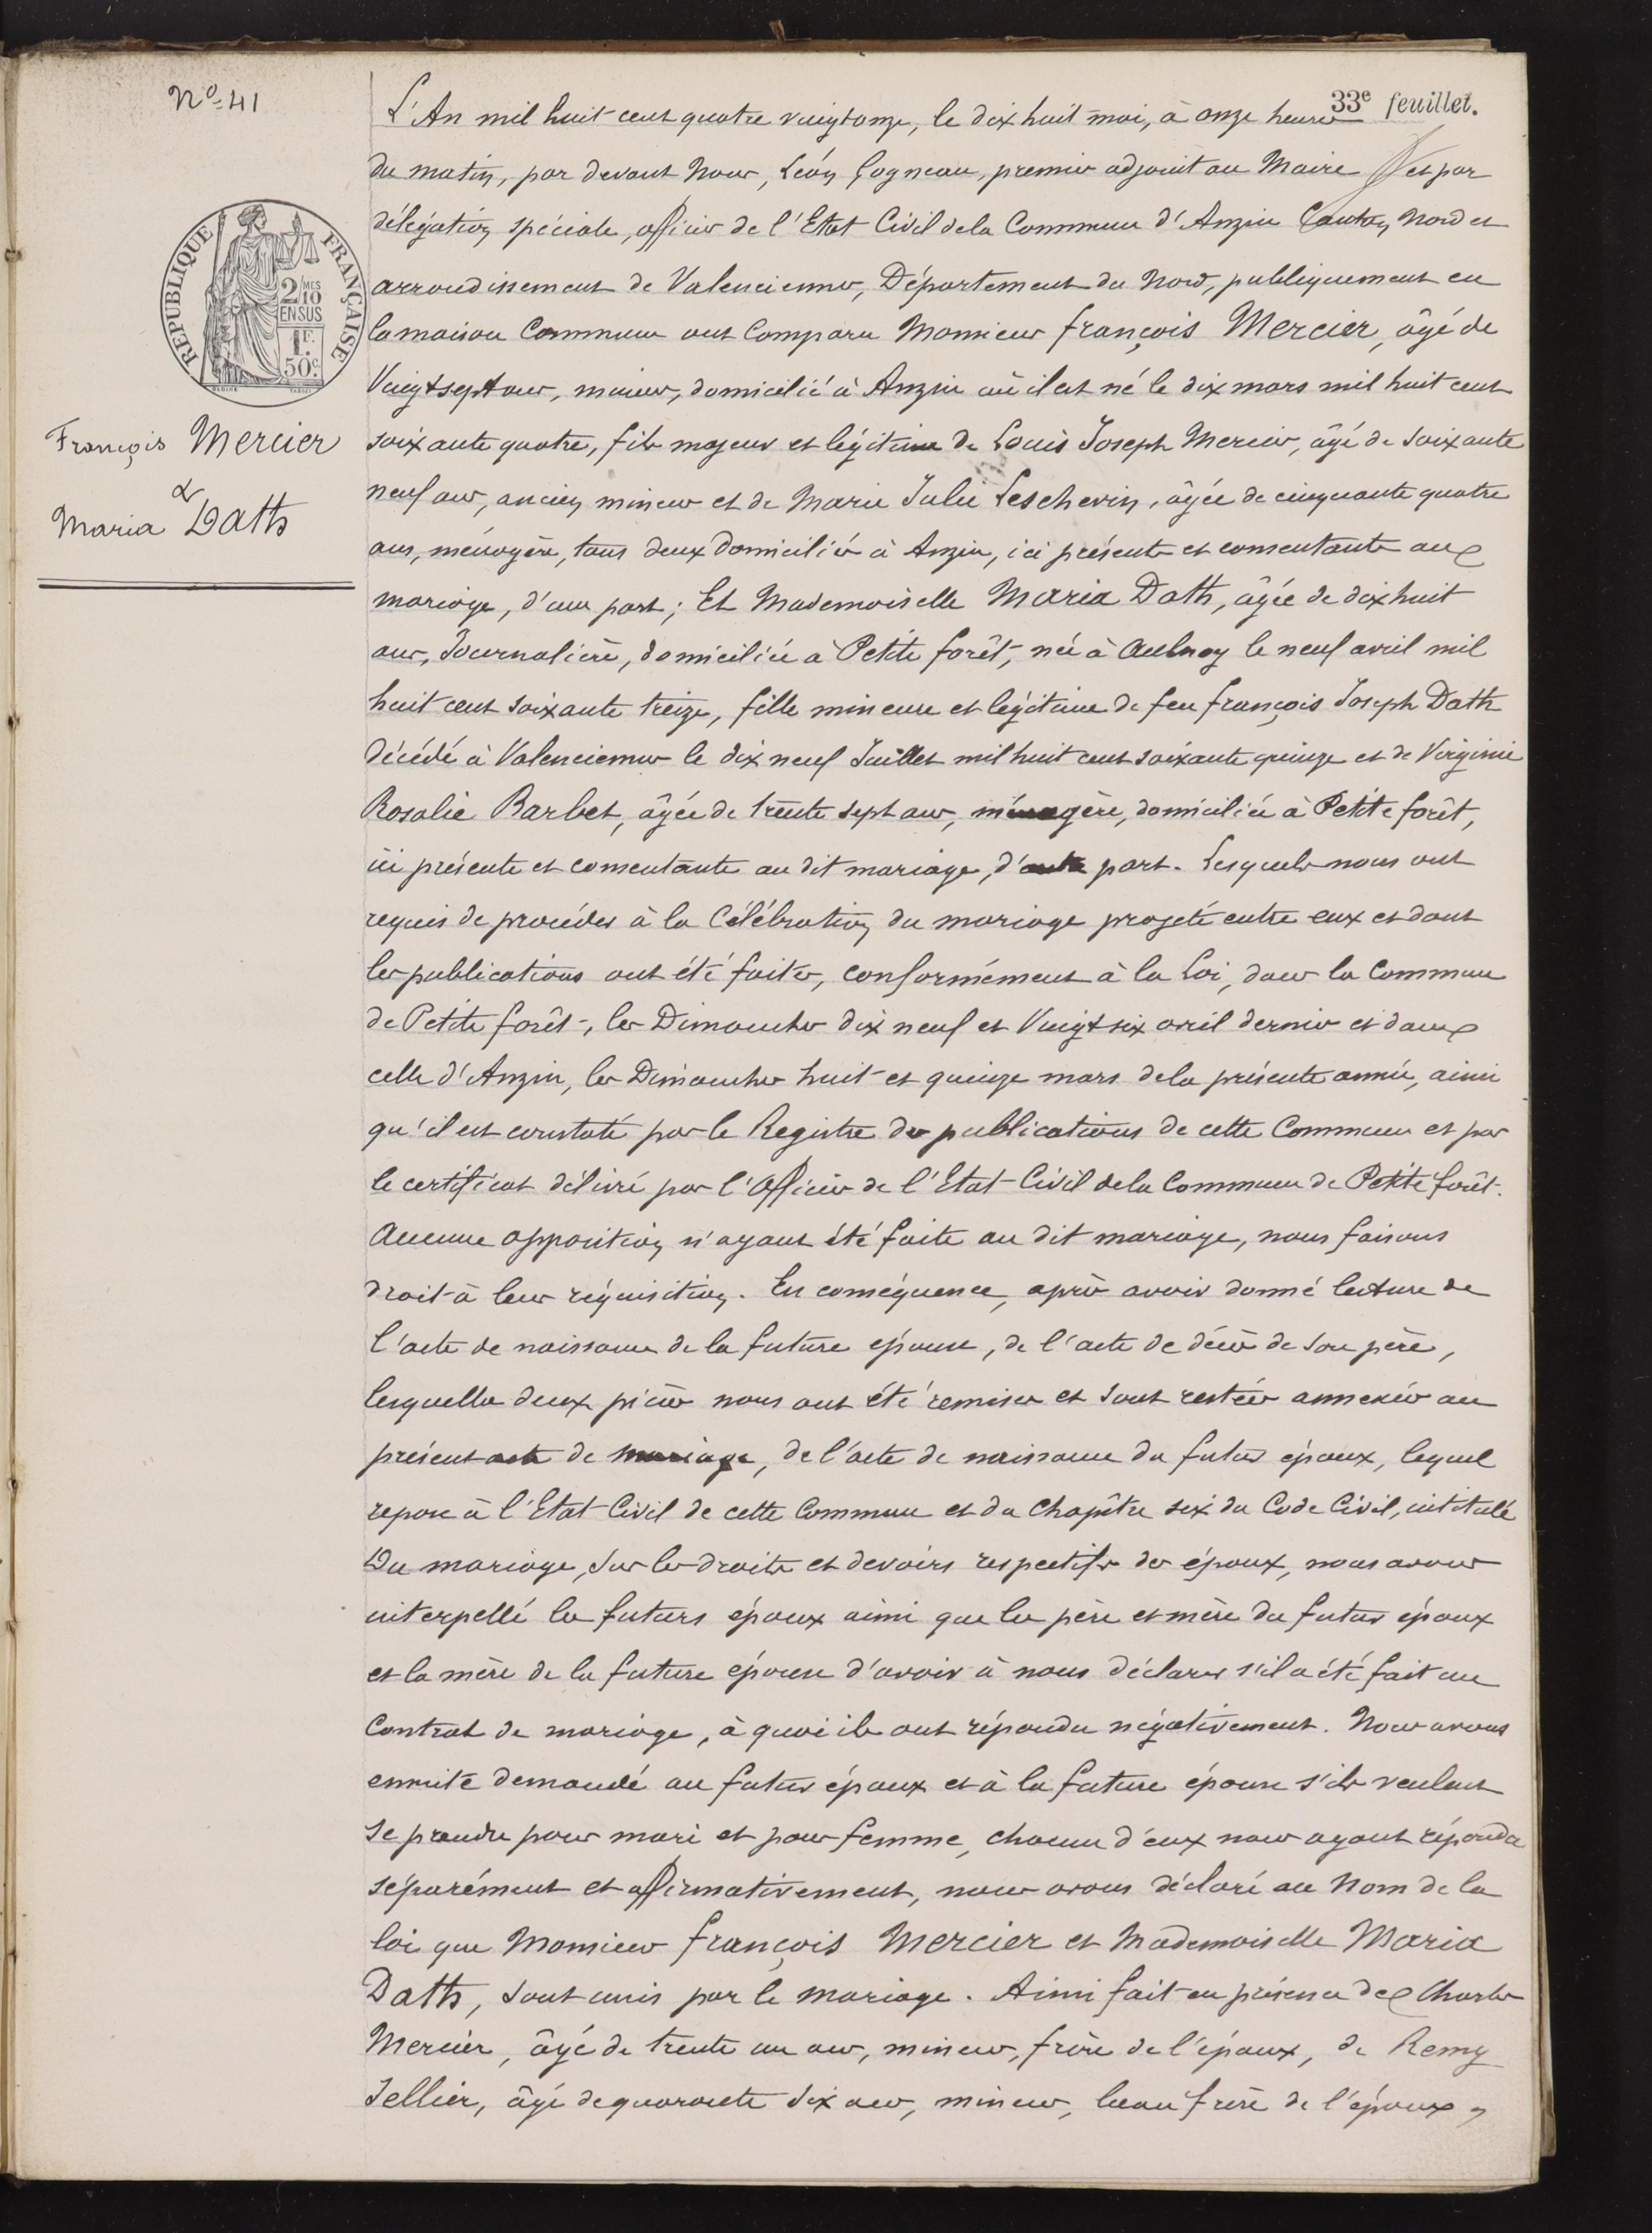 N° 41
33e feuillet.
L'An mil huit cent quatre vingt onze, le dix huit mai, à onze heures
du matin, par devant Nous, Léon Gogneau, premier adjoint au Maire et par
délégation spéciale, officier de l'Etat Civil de la Commune d'Anzin Canton Nord et
arrondissement de Valenciennes, Département du Nord, publiquement en
la maison Commune ont Comparu Monsieur françois Mercier, âgé de
Vingt sept ans, mineur, domicilié à Anzin où il est né le dix mars mil huit cent
soixante quatre, fils majeur et légitime de Louis Joseph Mercier, âgé de soixante
neuf ans, ancien mineur et de Marie Julie Leschevin, âgée de cinquante quatre
ans, ménagère, tous deux domiciliés à Anzin, ici présents et consentants au
mariage, d'une part; Et Mademoiselle Maria Dath, âgée de dix huit
ans, Journalière, domiciliée à Petite forêt, née à Aulnoy le neuf avril mil
huit cent soixante treize, fille mineure et légitime de feu françois Joseph Dath
décédé à Valenciennes le dix neuf Juillet mil huit cent soixante quinze et de Virginie
Rosalie Barbet, âgée de trente sept ans, ménagère, domiciliée à Petite forêt,
ici présente et consentante au dit mariage, d'autre part. Lesquels nous ont
requis de procéder à la Célébration du mariage projeté entre eux et dont
les publications ont été faites, conformément à la Loi, dans la Commune
de Petite forêt, les Dimanches dix neuf et Vingt six avril dernier et dans
celle d'Anzin, les Dimanches huit et quinze mars de la présente année, ainsi
qu'il est constaté par le Registre des publications de cette Commune et par
le certificat délivré par l'Officier de l'Etat Civil de la Commune de Petite forêt.
Aucune opposition n'ayant été faite au dit mariage, nous faisons
droit à leur réquisition. En conséquence, après avoir donné lecture de
l'acte de naissance de la future épouse, de l'acte de décès de son père,
lesquelles deux pièces nous ont été remises et sont restées annexées au
présent acte de mariage, de l'acte de naissance du futur époux, lequel
repose à l'Etat Civil de cette Commune et du Chapître six du Code Civil, intitulé
Du mariage, Sur les droits et devoirs respectifs des époux, nous avons
interpellé les futurs époux ainsi que les père et mère du futur époux
et la mère de la future épouse d'avoir à nous déclarer s'il a été fait un
Contrat de mariage, à quoi ils ont répondu négativement. Nous avons
ensuite demandé au futur époux et à la future épouse s'ils veulent
se prendre pour mari et pour femme, chacun d'eux nous ayant répondu
séparément et affirmativement, nous avons déclaré au Nom de la
loi que Monsieur françois Mercier et Mademoiselle Maria
Dath, sont unis par le mariage. Ainsi fait en présence de Charles
Mercier, âgé de trente un ans, mineur, frère de l'époux, de Remy
Tellier, âgé de quarante six ans, mineur, beau frère de l'époux,
REPUBLIQUE FRANÇAISE
2/10MES
EN SUS
1F.
50c.
François Mercier
&
Maria Dath